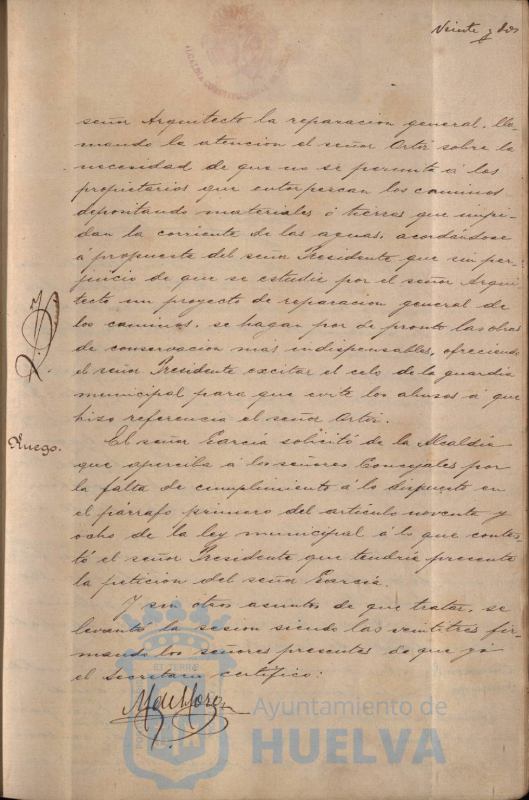 Veinte y dos
señor Arquitecto la reparacion general, lla-
mando la atencion el señor Ortiz sobre la
necesidad de que no se permita á los
propietarios que entorpezcan los caminos
depositando materiales ó tierras que impi-
dan la corriente de las aguas, acordándose
á propuesta del señor Presidente que sin per-
juicio de que se estudie por el señor Arqui-
tecto un proyecto de reparacion general de
los caminos, se hagan por de pronto las obras
de conservacion mas indispensables, ofreciendo
el señor Presidente excitar el celo de la guardia
municipal para que evite los abusos á que
hizo referencia el señor Ortiz.
Ruego.
El señor Garcia solicitó de la Alcaldia
que aperciba á los señores Concejales por
la falta de cumplimiento á lo dispuesto en
el párrafo primero del articulo noventa y
ocho de la ley municipal á lo que contes-
tó el señor Presidente que tendria presente
la peticion del señor Garcia.
Y sin otros asuntos de que tratar, se
levantó la sesion siendo las veintitres fir-
mando los señores presentes de que yo
el Secretario certifico:
Ayuntamiento de
HUELVA